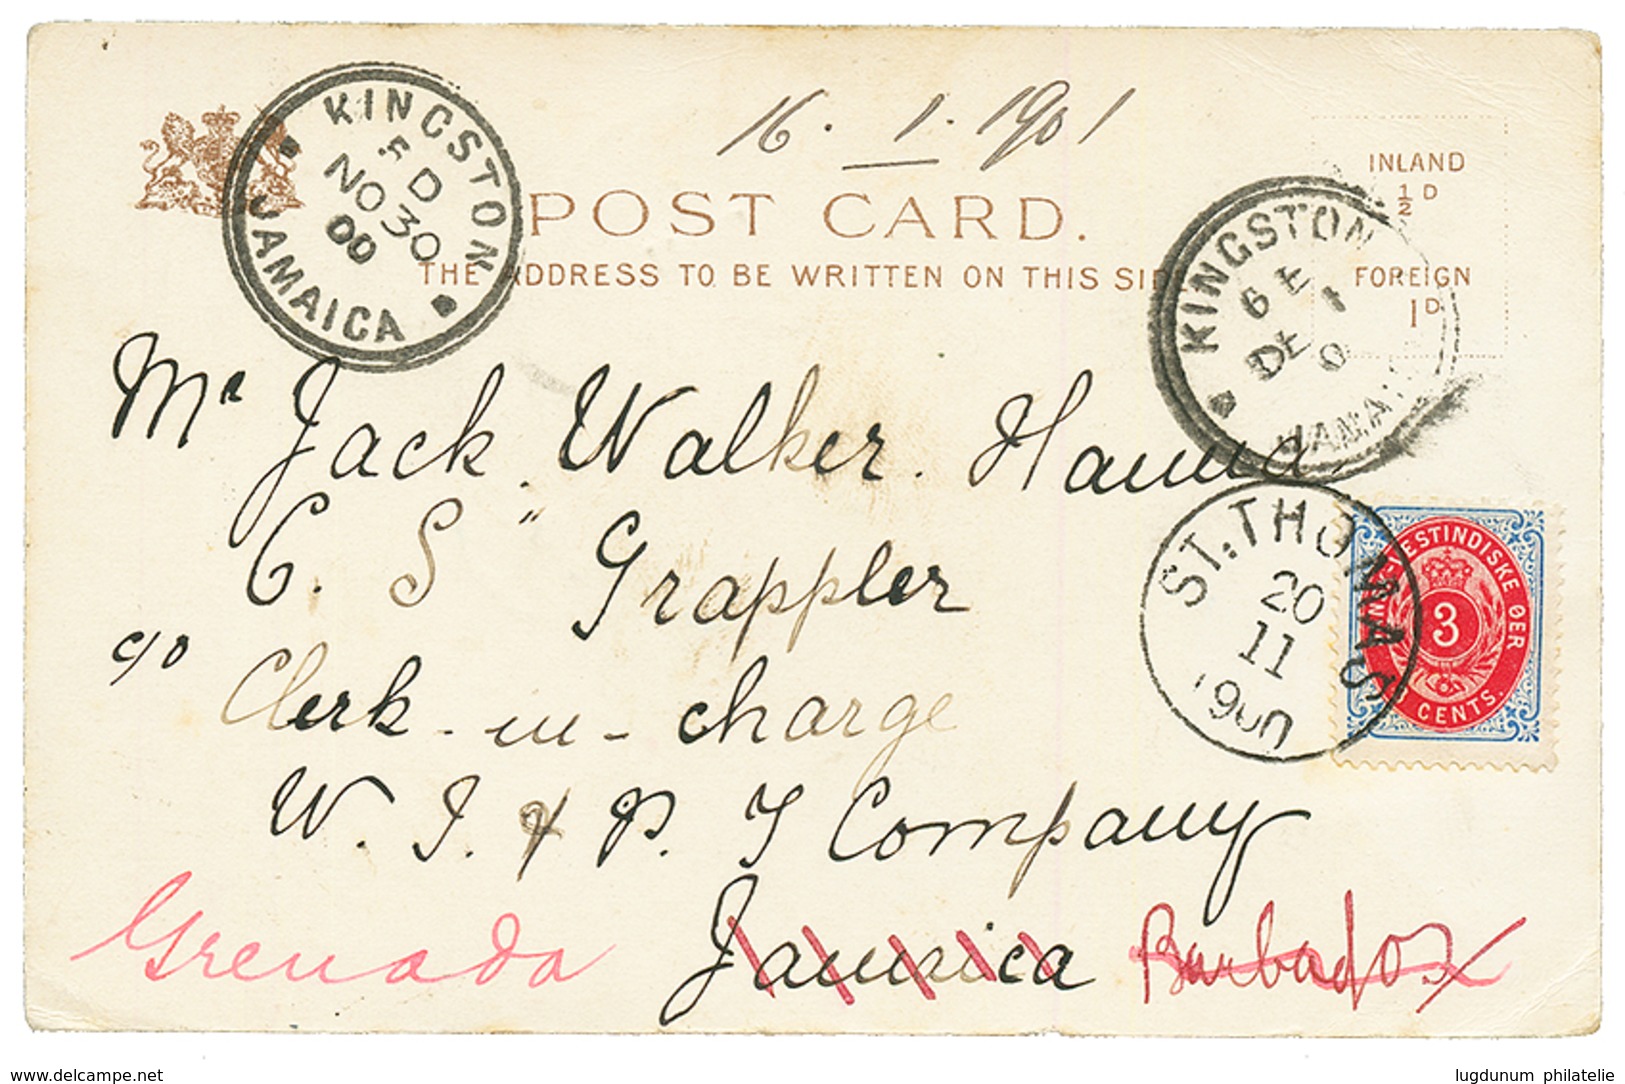 16. 1. 1901
KINGSTON
D
NO 30
00
JAMAICA
POST CARD.
THE ADDRESS TO BE WRITTEN ON THIS SIDE
INLAND
½ D
FOREIGN
1D
KINGSTON
6 E
DE 1
0
JAMAI
Mr Jack Walker. Hanna.
C. S " Grappler
c/o Clerk-in-charge
W. I. & P. T Company
Grenada Jamaica Barbados
ST: THOMAS
20
11
1900
VESTINDISKE ØER
3
CENTS.
delcampe.net
lugdunum philatelie